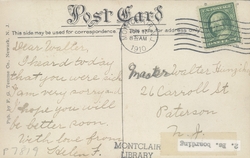 Post Card
This side may be used for correspondence
for address only
1910
Dear Walter,
I heard today
that you were sick
I am very sorry and
hope you will
be better soon.
With love from
Helen F.
Master Walter
26 Carroll St.
Paterson
N.J.
MONTCLAIR
LIBRARY